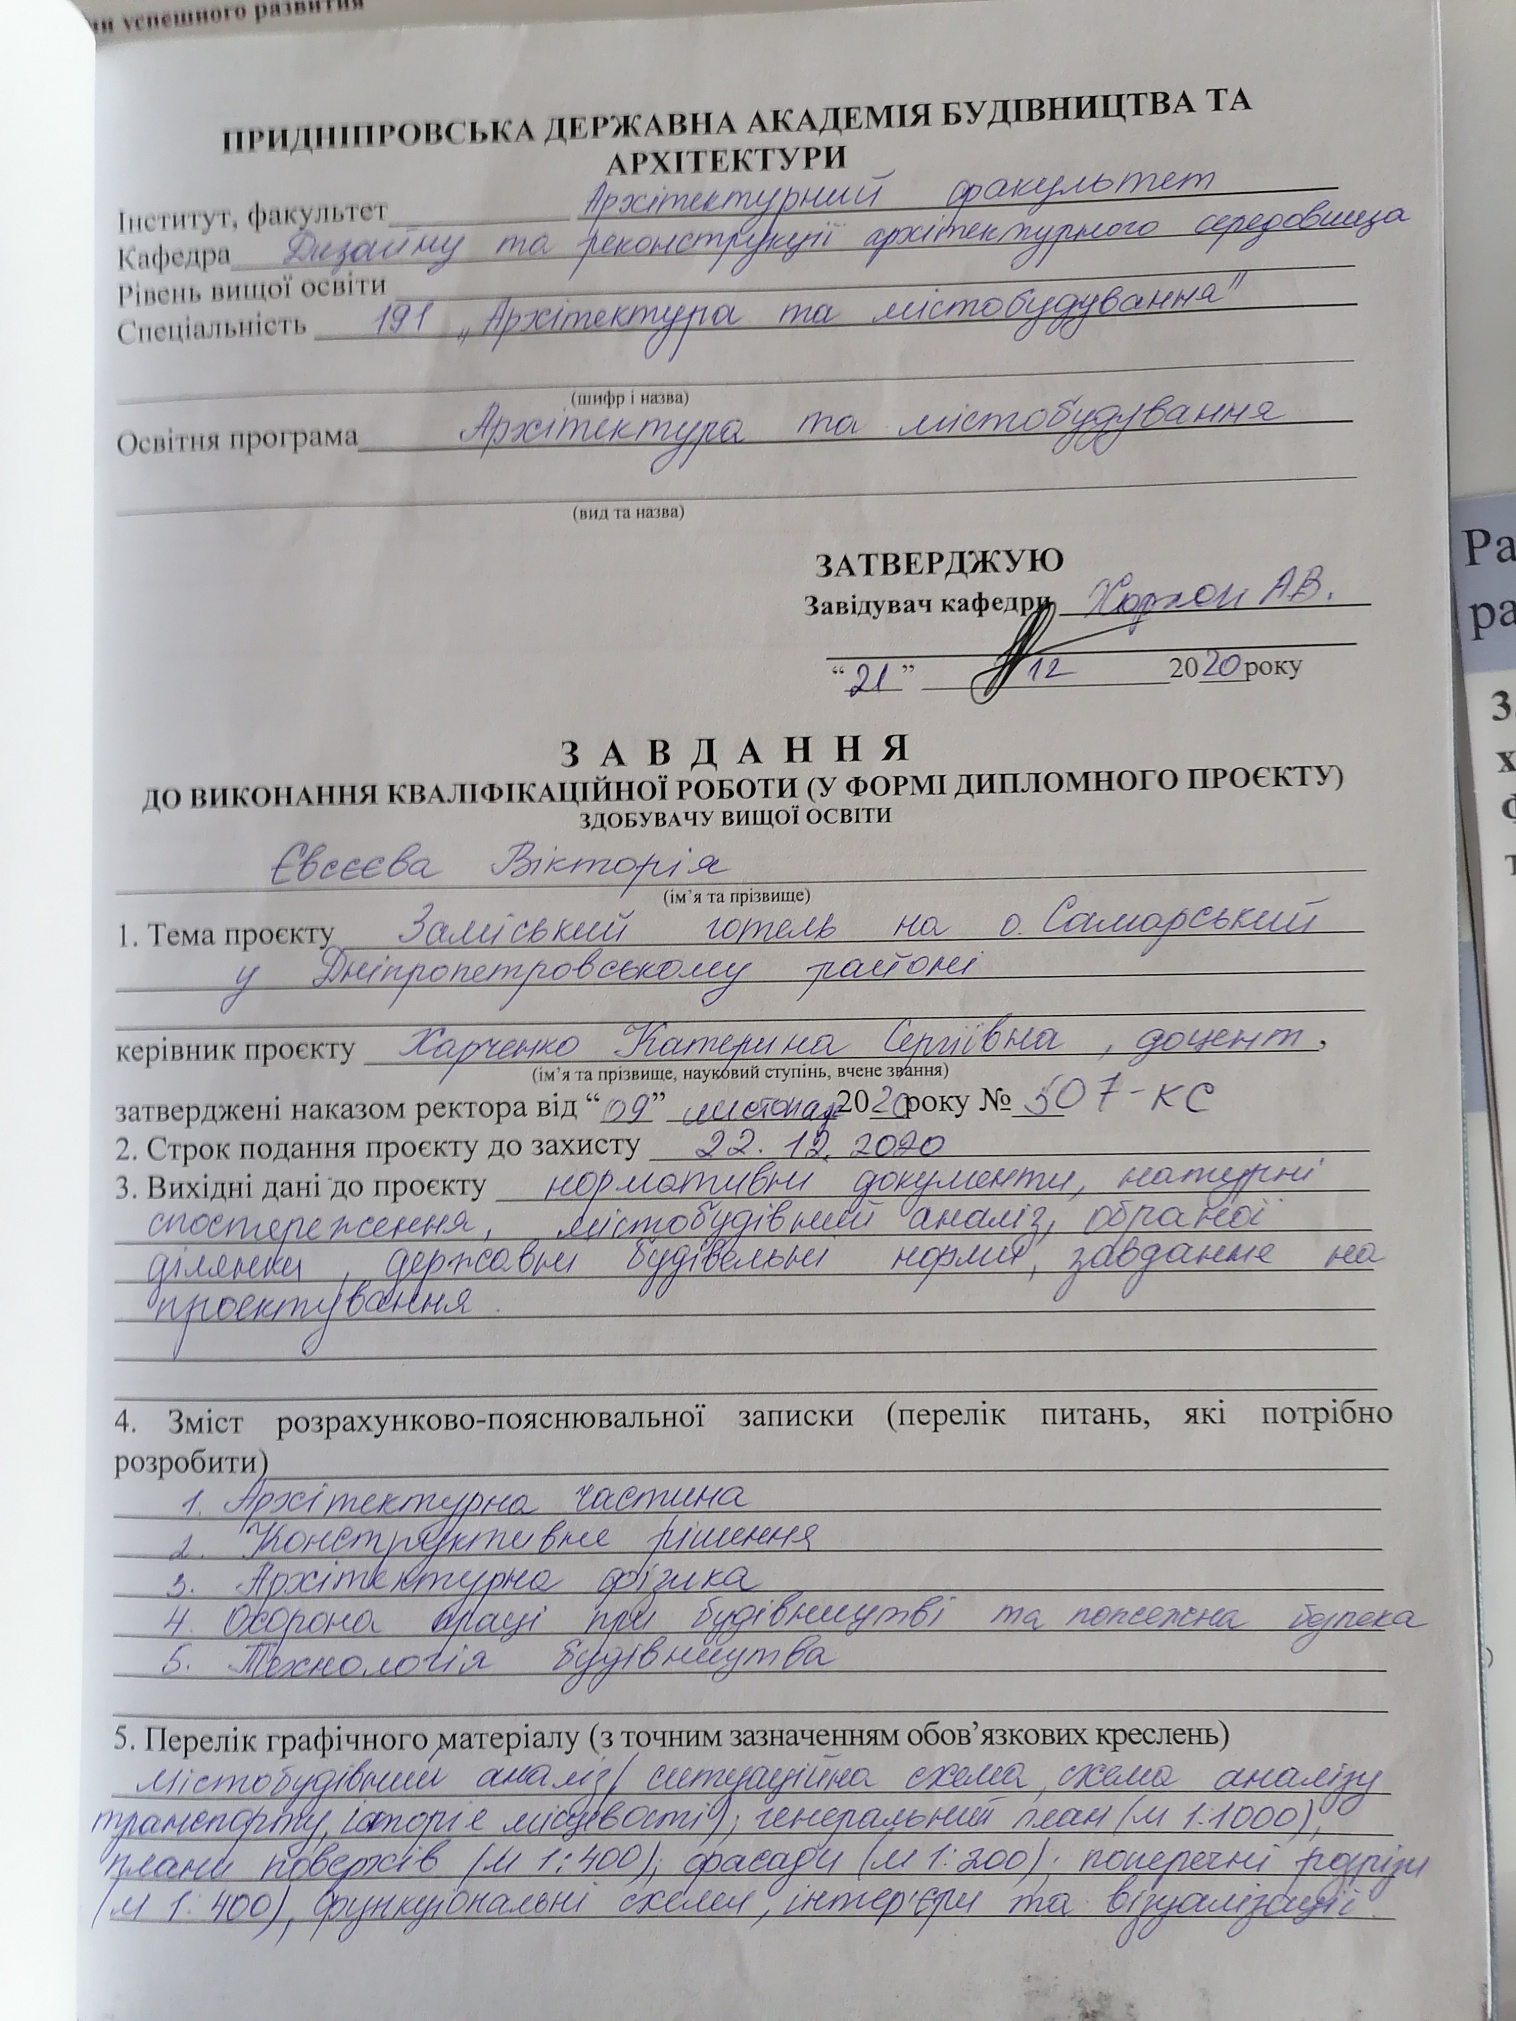 ии успешного развития
ПРИДНІПРОВСЬКА ДЕРЖАВНА АКАДЕМІЯ БУДІВНИЦТВА ТА
АРХІТЕКТУРИ
Інститут, факультет Архітектурний факультет
Кафедра Дизайну та реконструкції архітектурного середовища
Рівень вищої освіти
Спеціальність 191 „Архітектура та містобудування"
(шифр і назва)
Освітня програма Архітектура та містобудування
(вид та назва)
ЗАТВЕРДЖУЮ
Завідувач кафедри А.В.
“21” 12 2020 року
З А В Д А Н Н Я
ДО ВИКОНАННЯ КВАЛІФІКАЦІЙНОЇ РОБОТИ (У ФОРМІ ДИПЛОМНОГО ПРОЄКТУ)
ЗДОБУВАЧУ ВИЩОЇ ОСВІТИ
Євсєєва Вікторія
(ім’я та прізвище)
1. Тема проєкту Заміський готель на о. Самарський
у Дніпропетровському районі
керівник проєкту Харченко Катерина Сергіївна, доцент,
(ім’я та прізвище, науковий ступінь, вчене звання)
затверджені наказом ректора від “09” листопад 2020 року № 507-КС
2. Строк подання проєкту до захисту 22.12.2020
3. Вихідні дані до проєкту нормативні документи, натурні
спостереження, містобудівний аналіз, обраної
ділянки, державні будівельні норми, завдання на
проектування.
4. Зміст розрахунково-пояснювальної записки (перелік питань, які потрібно
розробити)
1. Архітектурна частина
2. Конструктивне рішення
3. Архітектурна фізика
4. Охорона праці при будівництві та пожежна безпека
5. Технологія будівництва
5. Перелік графічного матеріалу (з точним зазначенням обов’язкових креслень)
містобудівний аналіз/ ситуаційна схема, схема аналізу
транспорту, історіє місцевості); генеральний план (м 1:1000),
плани поверхів (м 1:400); фасади (м 1:200); поперечні розрізи
(м 1:400), функціональні схеми, інтер'єри та візуалізації.
Ра
ра
З
х
ф
т